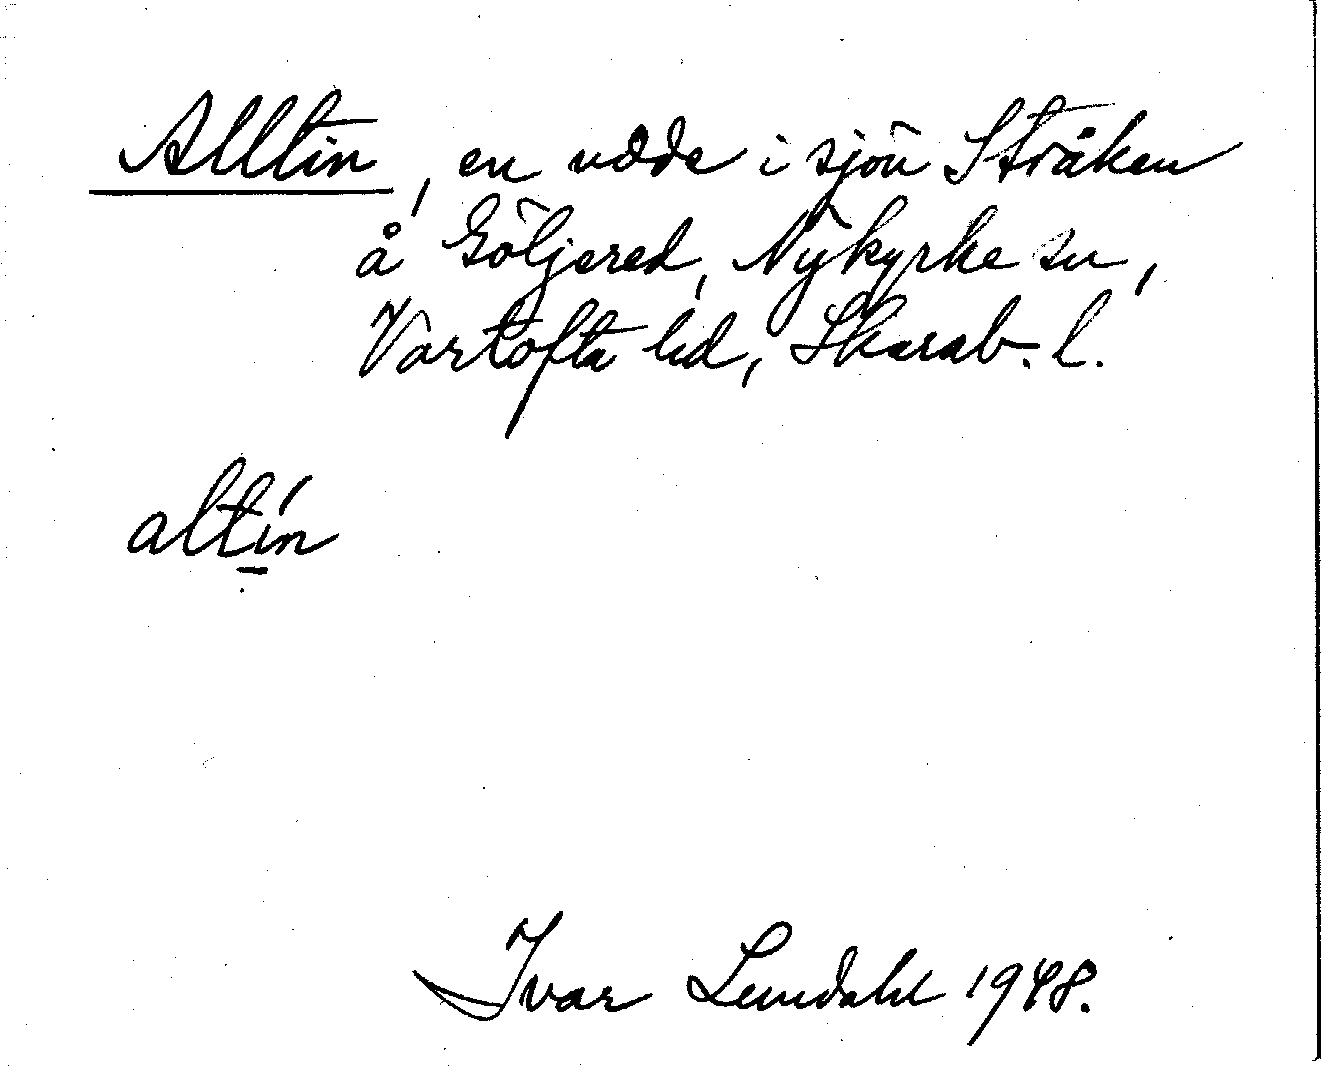 Alltin, en udde i sjön Stråken
å Göljered, Nykyrke sn,
Vartofta hd, Skarab. l.
altin
Ivar Lundahl 1948.